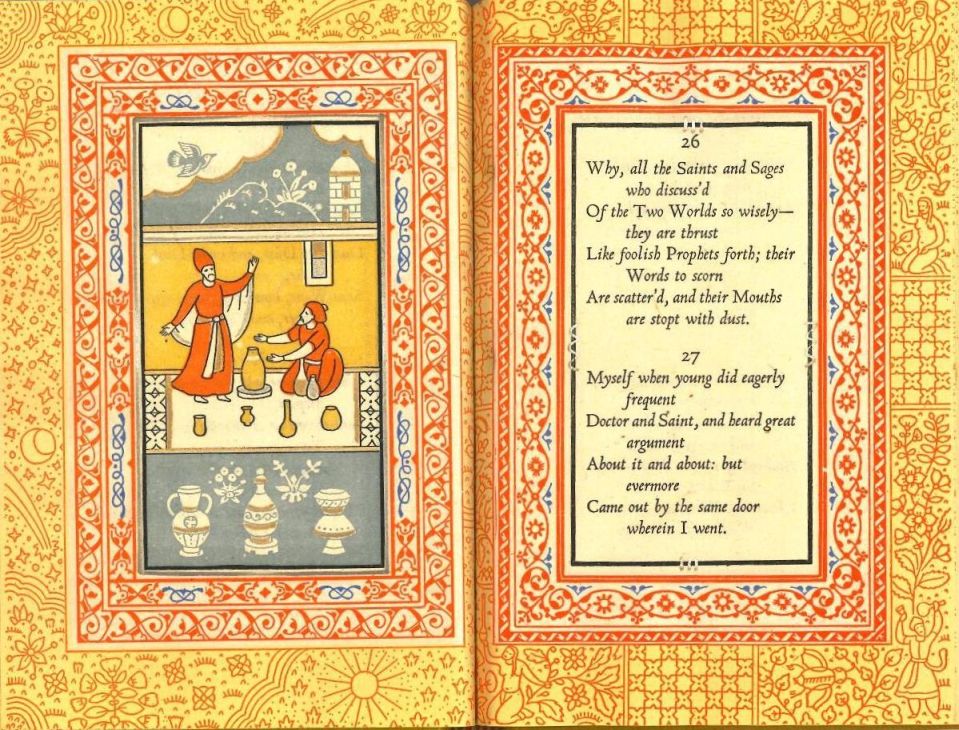 26
Why, all the Saints and Sages
who discuss'd
Of the Two Worlds so wisely—
they are thrust
Like foolish Prophets forth; their
Words to scorn
Are scatter'd, and their Mouths
are stopt with dust.
27
Myself when young did eagerly
frequent
Doctor and Saint, and heard great
argument
About it and about: but
evermore
Came out by the same door
wherein I went.